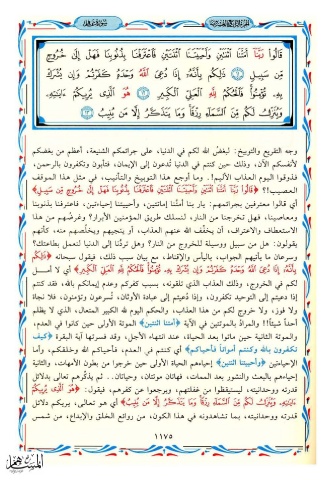 قَالُوا رَبَّنَا أَمَتَّنَا اثْنَتَيْنِ وَأَحْيَيْتَنَا اثْنَتَيْنِ فَاعْتَرَفْنَا بِذُنُوبِنَا فَهَلْ إِلَى خُرُوجٍ
مِّن سَبِيلٍ ذَلِكُم بِأَنَّهُ إِذَا دُعِيَ اللَّهُ وَحْدَهُ كَفَرْتُمْ وَإِن يُشْرَكْ
بِهِ تُؤْمِنُوا فَالْحُكْمُ لِلَّهِ الْعَلِيِّ الْكَبِيرِ هُوَ الَّذِي يُرِيكُمْ آيَاتِهِ
وَيُنَزِّلُ لَكُم مِّنَ السَّمَاءِ رِزْقًا وَمَا يَتَذَكَّرُ إِلَّا مَن يُنِيبُ
وجه التقريع والتوبيخ: لبغض الله لكم في الدنيا، على جرائمكم الشنيعة، أعظم من بغضكم
لأنفسكم الآن، وذلك حين كنتم في الدنيا تُدعون إلى الإيمان، فتأبون وتكفرون بالرحمن،
فذوقوا اليوم العذاب الأليم!. وما أوجع هذا التوبيخ والتأنيب، في مثل هذا الموقف
العصيب؟! ﴿قَالُوا رَبَّنَا أَمَتَّنَا اثْنَتَيْنِ وَأَحْيَيْتَنَا اثْنَتَيْنِ فَاعْتَرَفْنَا بِذُنُوبِنَا فَهَلْ إِلَى خُرُوجٍ مِّن سَبِيلٍ﴾
أي قالوا معترفين بجرائمهم: يار بنا أمتَّنا إماتتين، وأحييتنا إحياءتين، فاعترفنا بذنوبنا
ومعاصينا، فهل تخرجنا من النار، لنسلك طريق المؤمنين الأبرار؟ وغرضُهم من هذا
الاستعطاف والاعتراف، أن يخفِّف الله عنهم العذاب، أو ينجيهم ويخلِّصهم منه، كأنهم
يقولون: هل من سبيل ووسيلة للخروج من النار؟ وهل تردُّنا إلى الدنيا لنعمل بطاعتك؟
وسرعان ما يأتيهم الجواب، باليأس والإقناط، مع بيان سبب ذلك، فيقول سبحانه ﴿ذَلِكُم
بِأَنَّهُ إِذَا دُعِيَ اللَّهُ وَحْدَهُ كَفَرْتُمْ وَإِن يُشْرَكْ بِهِ تُؤْمِنُوا فَالْحُكْمُ لِلَّهِ الْعَلِيِّ الْكَبِيرِ﴾ أي لا أمل
لكم في الخروج، وذلك العذاب الذي تلقونه، بسبب كفركم وعدم إيمانكم بالله، فقد كنتم
إذا دعيتم إلى التوحيد تكفرون، وإذا دُعيتم إلى عبادة الأوثان، تُسرعون وتؤمنون، فلا نجاة
ولا فوز، ولا خروج لكم من هذا العذاب، والحكم اليوم لله الكبير المتعال، الذي لا يظلم
أحداً شيئاً!! والمرادُ بالموتتين في الآية ﴿أمتنا اثنتين﴾ الموتة الأولى حين كانوا في العدم،
والموتة الثانية حين ماتوا بعد الحياة، عند انتهاء الأجل، وقد فسرتها آية البقرة ﴿كيف
تكفرون بالله وكنتم أمواتاً فأحياكم﴾ أي كنتم في العدم، فأحياكم الله وخلقكم، وأما
الإحياءتين ﴿وأحييتنا اثنتين﴾ إحياءهم الحياة الأولى حين خرجوا من بطون الأمهات، والثانية
إحياءهم بالبعث والنشور بعد الممات، فهاتان موتتان، وحياتان.. ثم يذكِّرهم تعالى بدلائل
قدرته ووحدانيته، ليستيقظوا من غفلتهم، ويرجعوا عن كفرهم، فيقول: ﴿هُوَ الَّذِي يُرِيكُمْ
آيَاتِهِ وَيُنَزِّلُ لَكُم مِّنَ السَّمَاءِ رِزْقًا وَمَا يَتَذَكَّرُ إِلَّا مَن يُنِيبُ﴾ أي هو تعالى، يريكم دلائل
قدرته ووحدانيته، بما تشاهدونه في هذا الكون، من روائع الخلق والإبداع، من شمس
١١٧٥